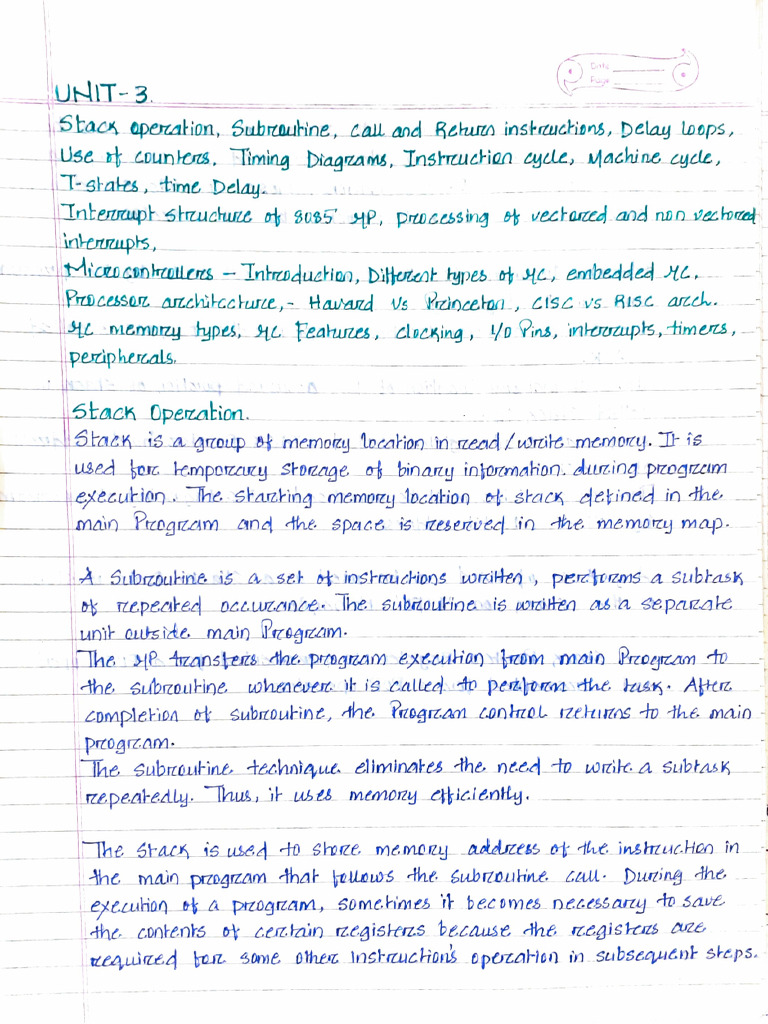 Date
Page
UNIT-3.
Stack operation, Subroutine, call and Return instructions, Delay loops,
Use of counters, Timing Diagrams, Instruction cycle, Machine cycle,
T-states, time Delay.
Interrupt structure of 8085 μP, processing of vectored and non vectored
interrupts,
Microcontrollers – Introduction, Different types of μC, embedded μC,
Processor architecture,- Havard Vs Princeton, CISC vs RISC arch.
μC memory types, μC Features, clocking, I/O Pins, interrupts, timers,
peripherals.
Stack Operation.
Stack is a group of memory location in read/write memory. It is
used for temporary storage of binary information during program
execution. The starting memory location of stack defined in the
main Program and the space is reserved in the memory map.
A Subroutine is a set of instructions written, performs a subtask
of repeated occurance. The subroutine is written as a separate
unit outside main Program.
The μP transfers the program execution from main Program to
the subroutine whenever it is called to perform the task. After
completion of subroutine, the Program control returns to the main
program.
The subroutine technique eliminates the need to write a subtask
repeatedly. Thus, it uses memory efficiently.
The stack is used to store memory address of the instruction in
the main program that follows the subroutine call. During the
execution of a program, sometimes it becomes necessary to save
the contents of certain registers because the registers are
required for some other instruction's operation in subsequent steps.